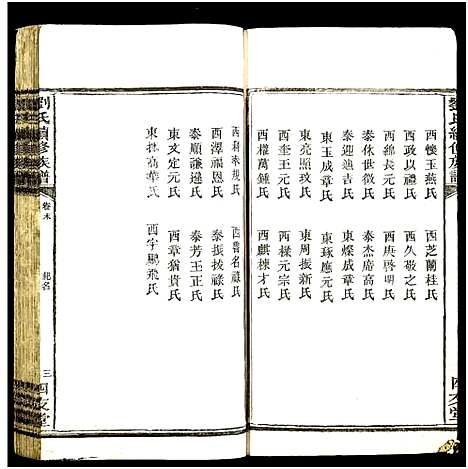 劉氏續修族譜
西懷玉燕氏　西芝蘭桂氏
西政以禮氏　西久敬之氏
西綿長元氏　西庚啓明氏
泰休世徵氏　泰杰磨高氏
泰迎迪吉氏　東燦成章氏
東玉成章氏　東琢應元氏
東亮照玟氏　東周振新氏
西奎王元氏　西樑元宗氏
西權萬鍾氏　西麒棟才氏
西科泰規氏　西魯名祿氏
西澤福恩氏　泰振拔錄氏
泰順祿逵氏　泰芳玉正氏
東文定元氏　西章猶貴氏
東拔高華氏　西宇鵬飛氏
劉氏續修族譜
卷末　　三
四友堂